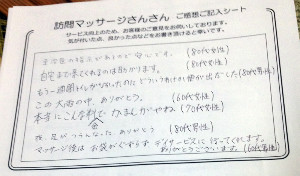 訪問マッサージさんさん ご感想ご記入シート
サービス向上のため、お客様のご意見をお伺いしております。
気が付いた点、良かった点などをお書き頂けると幸いです。
(80代女性)
自宅まで来てくれるのは助かります。 (80代男性)
もう一週間 (80代男性)
この大雪の中、ありがとう。 (60代女性)
本当にこんな料金でかまんがやね。 (70代女性)
夜、足がつらんなった。ありがとう (80代男性)
マッサージ後は お袋がぐずらず デイサービスに行ってくれます。
ありがとうございます。(60代男性)